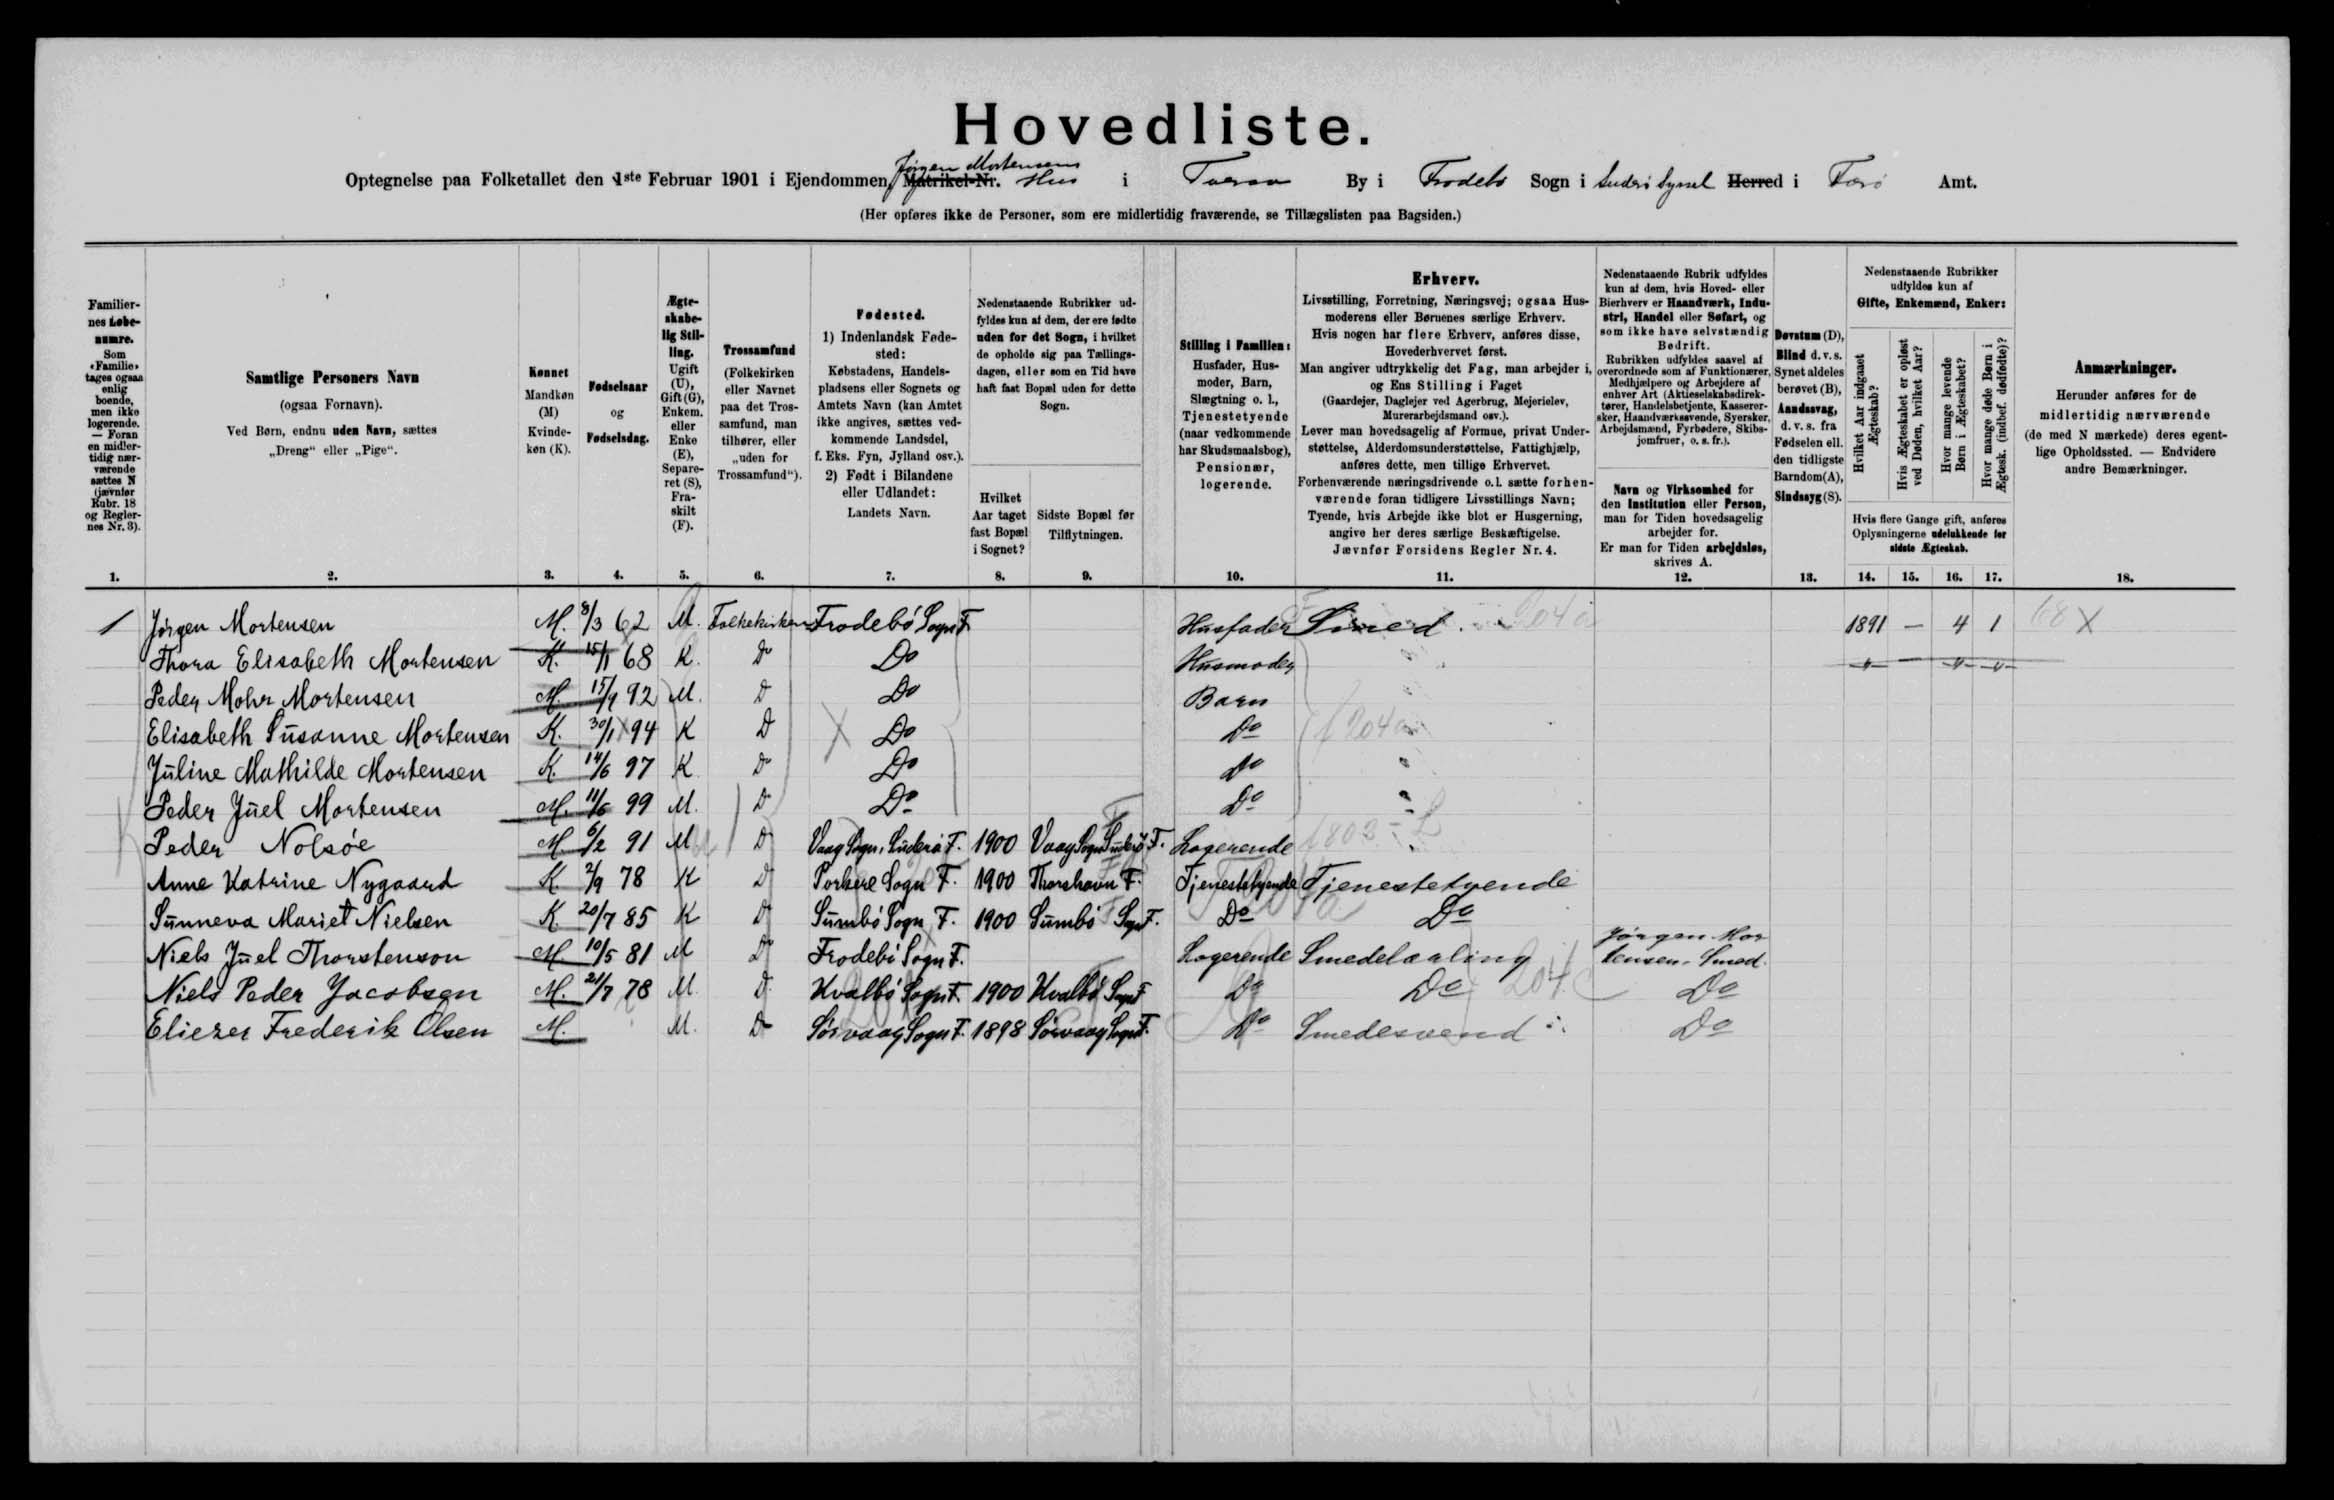 Hovedliste.
Jørgen Mortensens
Optegnelse paa Folketallet den 1ste Februar 1901 i Ejendommen, Matrikel-Nr. Hus i Tveraa By i Frodebø Sogn i Suderø Syssel Herred i Færø Amt.
(Her opføres ikke de Personer, som ere midlertidig fraværende, se Tillægslisten paa Bagsiden.)
Familiernes Løbenumre.
Som «Familie» tages ogsaa enlig boende, men ikke logerende. — Foran en midlertidig nærværende sættes N (jævnfør Rubr. 18 og Reglernes Nr. 3).
Samtlige Personers Navn
(ogsaa Fornavn).
Ved Børn, endnu uden Navn, sættes
„Dreng“ eller „Pige“.
Kønnet
Mandkøn (M)
Kvindekøn (K).
Fødselsaar
og
Fødselsdag.
Ægteskabelig Stilling.
Ugift (U), Gift (G), Enkem. eller Enke (E), Separeret (S), Fraskilt (F).
Trossamfund
(Folkekirken eller Navnet paa det Trossamfund, man tilhører, eller „uden for Trossamfund“).
Fødested.
1) Indenlandsk Fødested:
Købstadens, Handelspladsens eller Sognets og Amtets Navn (kan Amtet ikke angives, sættes vedkommende Landsdel, f. Eks. Fyn, Jylland osv.).
2) Født i Bilandene eller Udlandet:
Landets Navn.
Nedenstaaende Rubrikker udfyldes kun af dem, der ere fødte uden for det Sogn, i hvilket de opholde sig paa Tællingsdagen, eller som en Tid have haft fast Bopæl uden for dette Sogn.
Hvilket Aar taget fast Bopæl i Sognet?
Sidste Bopæl før Tilflytningen.
Stilling i Familien:
Husfader, Husmoder, Barn, Slægtning o. l., Tjenestetyende (naar vedkommende har Skudsmaalsbog), Pensionær, logerende.
Erhverv.
Livsstilling, Forretning, Næringsvej; ogsaa Husmoderens eller Børnenes særlige Erhverv.
Hvis nogen har flere Erhverv, anføres disse, Hovederhvervet først.
Man angiver udtrykkelig det Fag, man arbejder i, og Ens Stilling i Faget
(Gaardejer, Daglejer ved Agerbrug, Mejerielev, Murerarbejdsmand osv.).
Lever man hovedsagelig af Formue, privat Understøttelse, Alderdomsunderstøttelse, Fattighjælp, anføres dette, men tillige Erhvervet.
Forhenværende næringsdrivende o. l. sætte forhenværende foran tidligere Livsstillings Navn;
Tyende, hvis Arbejde ikke blot er Husgerning, angive her deres særlige Beskæftigelse.
Jævnfør Forsidens Regler Nr. 4.
Nedenstaaende Rubrik udfyldes kun af dem, hvis Hoved- eller Bierhverv er Haandværk, Industri, Handel eller Søfart, og som ikke have selvstændig Bedrift.
Rubrikken udfyldes saavel af overordnede som af Funktionærer, Medhjælpere og Arbejdere af enhver Art (Aktieselskabsdirektører, Handelsbetjente, Kasserersker, Haandværkssvende, Syersker, Arbejdsmænd, Fyrbødere, Skibsjomfruer, o. s. fr.).
Navn og Virksomhed for den Institution eller Person, man for Tiden hovedsagelig arbejder for.
Er man for Tiden arbejdsløs, skrives A.
Døvstum (D), Blind d. v. s. Synet aldeles berøvet (B), Aandssvag, d. v. s. fra Fødselen ell. den tidligste Barndom (A), Sindssyg (S).
Nedenstaaende Rubrikker udfyldes kun af
Gifte, Enkemænd, Enker:
Hvilket Aar indgaaet Ægteskab?
Hvis Ægteskabet er opløst ved Døden, hvilket Aar?
Hvor mange levende Børn i Ægteskabet?
Hvor mange døde Børn i Ægtesk. (indbef. dødfødte)?
Hvis flere Gange gift, anføres Oplysningerne udelukkende for sidste Ægteskab.
Anmærkninger.
Herunder anføres for de midlertidig nærværende (de med N mærkede) deres egentlige Opholdssted. — Endvidere andre Bemærkninger.
1. 2. 3. 4. 5. 6. 7. 8. 9. 10. 11. 12. 13. 14. 15. 16. 17. 18.
1 Jørgen Mortensen M. 8/3 62 M. Folkekirken Frodebø Sogn F. Husfader Smed. 204a 1891 — 4 1 68 X
Thora Elisabeth Mortensen K. 15/1 68 K. Do Do Husmoder " — " "
Peder Mohr Mortensen M. 15/9 92 M. D Do Barn "
Elisabeth Susanne Mortensen K. 30/1 94 K D X Do Do f 204a
Juline Mathilde Mortensen K. 14/6 97 K Do Do Do "
Peder Juel Mortensen M. 11/6 99 M. D Do Do "
Peder Nolsøe M. 6/2 91 M D Vaag Sogn, Suderø F. 1900 Vaag Sogn Suderø F. Logerende 1803
Anne Katrine Nygaard K. 2/9 78 K D Porkere Sogn F. 1900 Thorshavn F. Tjenestetyende Tjenestetyende
Sunneva Mariet Nielsen K 20/7 85 K D Sumbø Sogn F. 1900 Sumbø Sogn F. Do Do
Niels Juel Thorstenson M. 10/5 81 M D Frodebø Sogn F. Logerende Smedelærling Jørgen Mortensen, Smed.
Niels Peder Jacobsen M. 21/7 78 M. D. Kvalbø Sogn F. 1900 Kvalbø Sogn F Do Do 204c Do
Eliezer Frederik Olsen M. M. D Sørvaag Sogn F. 1898 Sørvaag Sogn F. Do Smedesvend Do